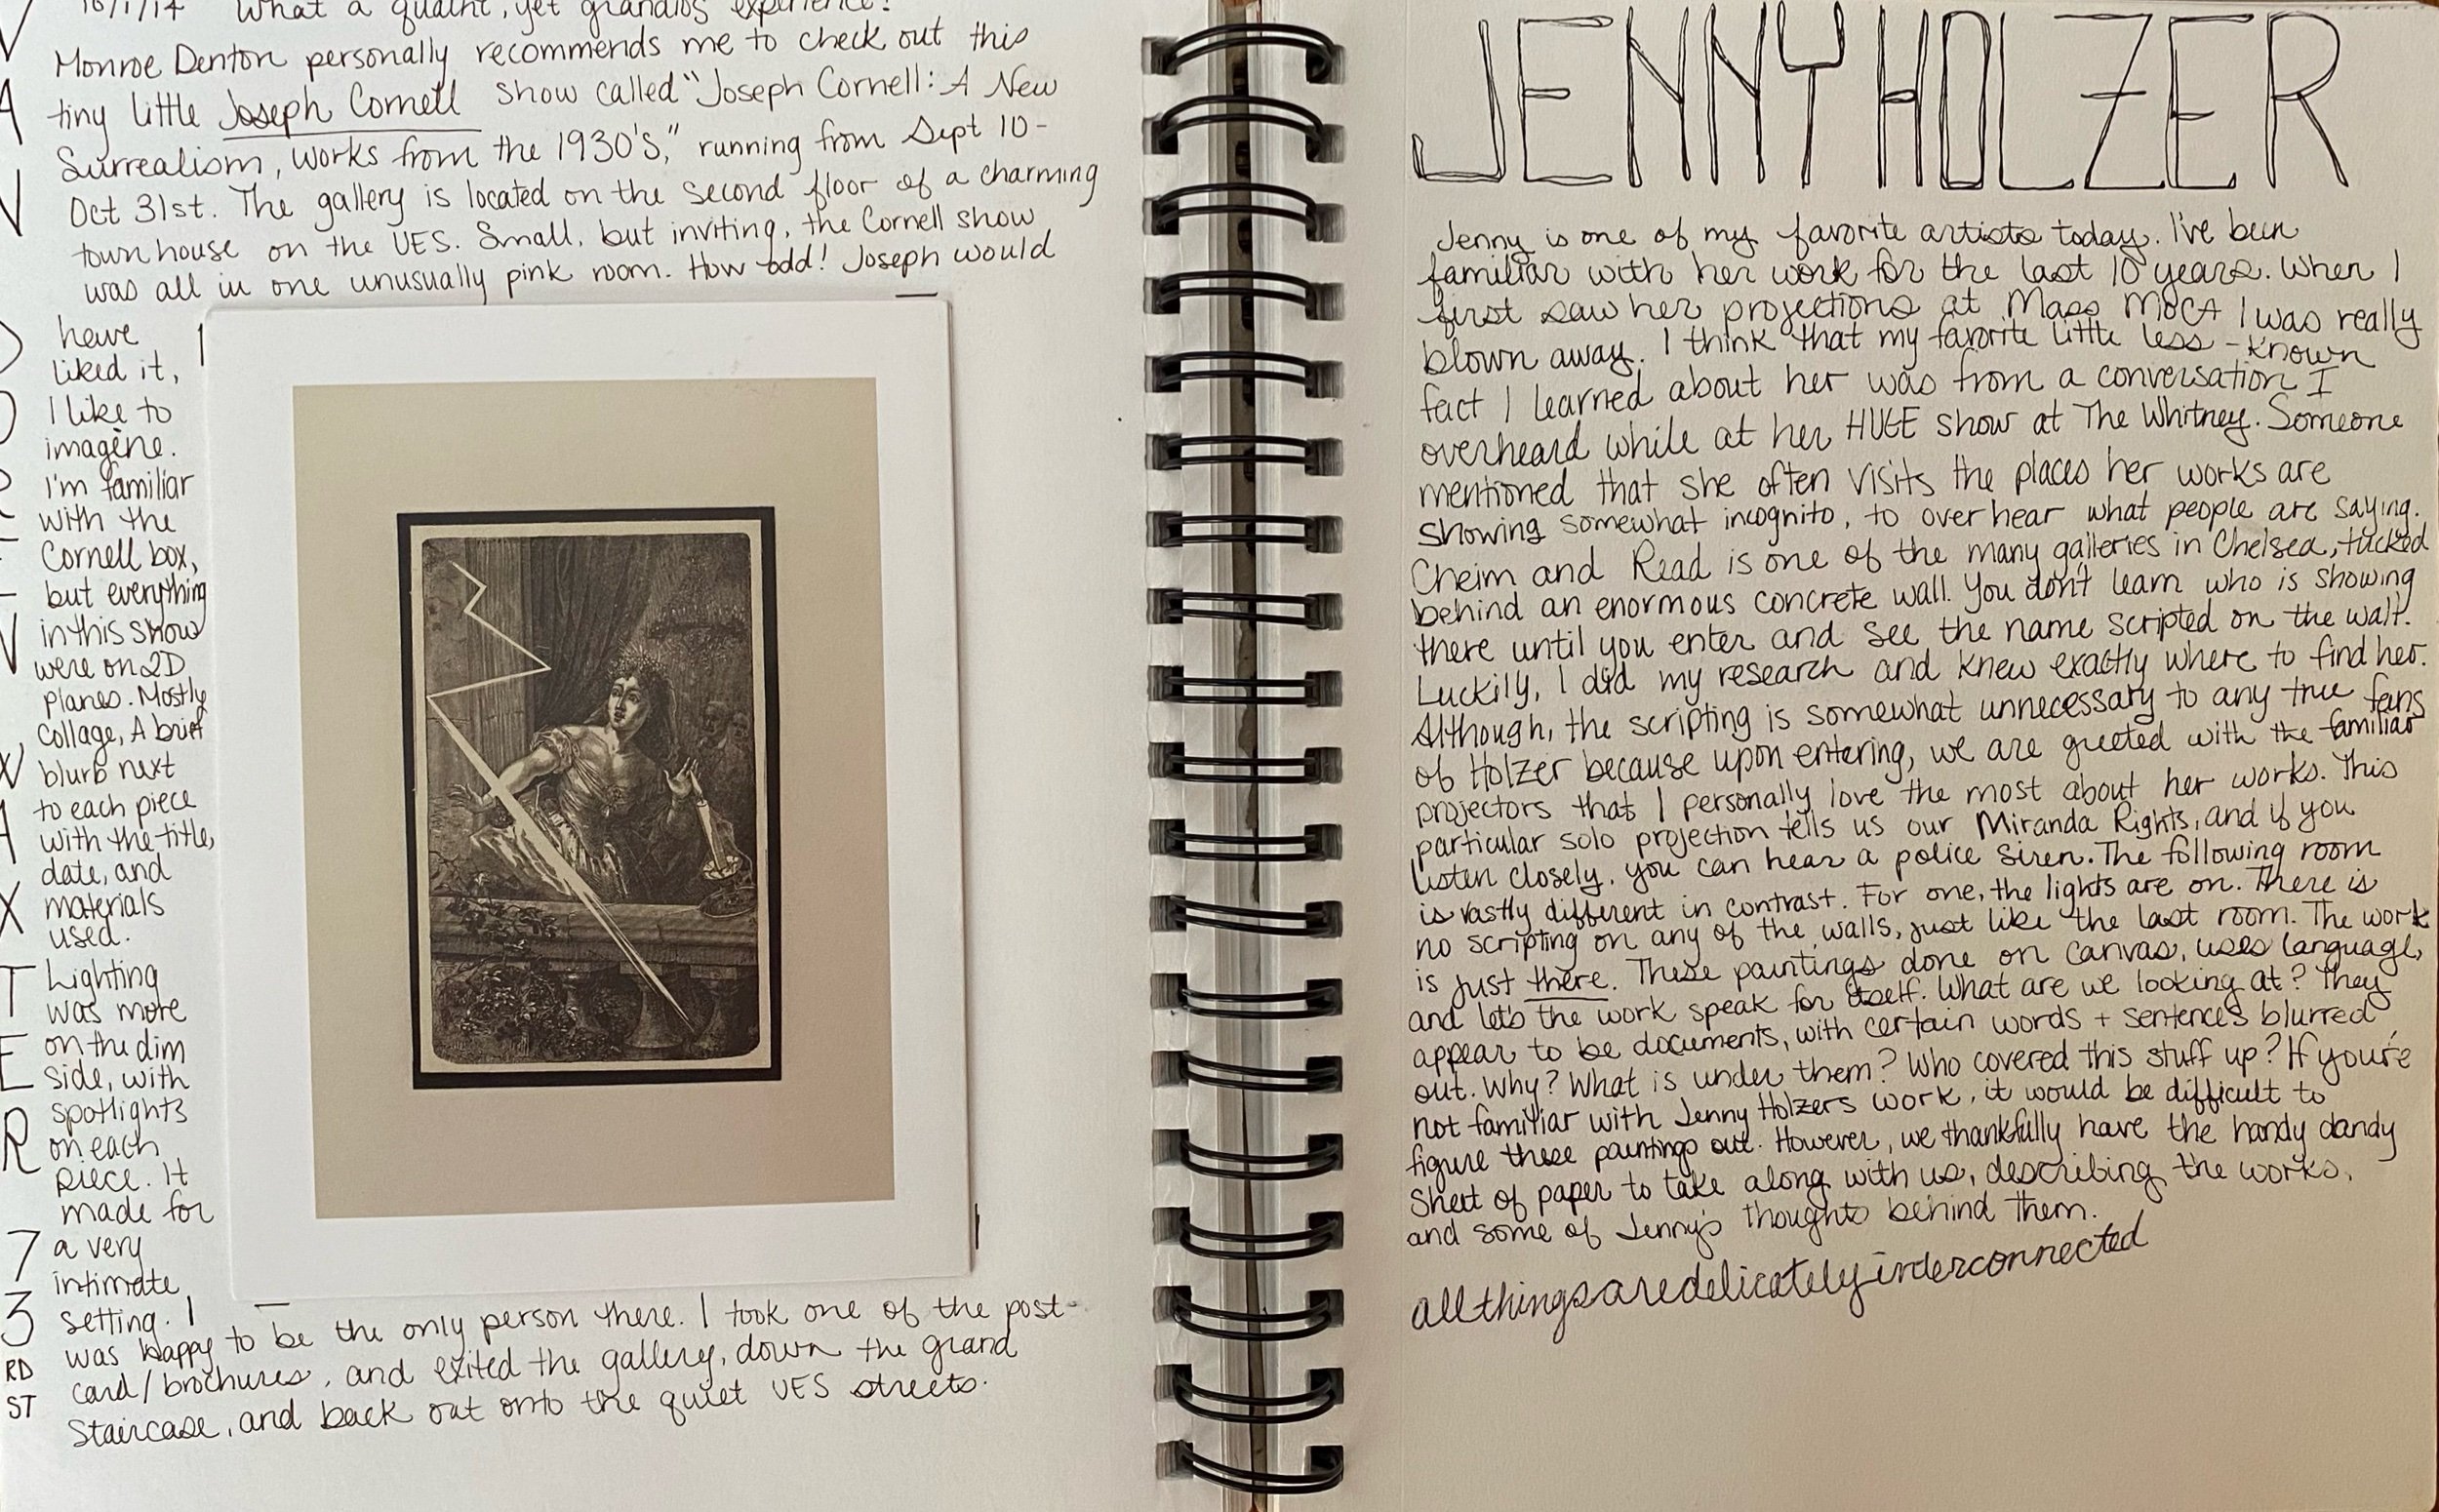 10/1/14 What a quaint, yet grandios experience!
Monroe Denton personally recommends me to check out this
tiny little Joseph Cornell show called "Joseph Cornell: A New
Surrealism, works from the 1930's," running from Sept 10-
Oct 31st. The gallery is located on the second floor of a charming
townhouse on the UES. Small, but inviting, the Cornell show
was all in one unusually pink room. How odd! Joseph would
have
liked it,
I like to
imagine.
I'm familiar
with the
Cornell box,
but everything
in this show
were on 2D
planes. Mostly
Collage, A brief
blurb next
to each piece
with the title,
date, and
materials
used.
Lighting
was more
on the dim
side, with
spotlights
on each
piece. It
made for
a very
intimate
setting. I
was happy to be the only person there. I took one of the post-
card/brochures, and exited the gallery, down the grand
Staircase, and back out onto the quiet UES streets.
V
A
N
D
O
R
E
N
W
A
X
T
E
R
7
3
RD
ST
JENNY HOLZER
Jenny is one of my favorite artists today. I've been
familiar with her work for the last 10 years. When I
first saw her projections at Mass MoCA I was really
blown away. I think that my favorite little less-known
fact I learned about her was from a conversation I
overheard while at her HUGE show at The Whitney. Someone
mentioned that she often visits the places her works are
showing somewhat incognito, to over hear what people are saying.
Cheim and Read is one of the many galleries in Chelsea, tucked
behind an enormous concrete wall. You don't learn who is showing
there until you enter and see the name scripted on the wall.
Luckily, I did my research and knew exactly where to find her.
Although, the scripting is somewhat unnecessary to any true fans
of Holzer because upon entering, we are greeted with the familiar
projectors that I personally love the most about her works. This
particular solo projection tells us our Miranda Rights, and if you
listen closely, you can hear a police siren. The following room
is vastly different in contrast. For one, the lights are on. There is
no scripting on any of the walls, just like the last room. The work
is just there. These paintings done on canvas, uses language,
and lets the work speak for itself. What are we looking at? They
appear to be documents, with certain words + sentences blurred
out. Why? What is under them? Who covered this stuff up? If you're
not familiar with Jenny Holzers work, it would be difficult to
figure these paintings out. However, we thankfully have the handy dandy
Sheet of paper to take along with us, describing the works,
and some of Jenny's thoughts behind them.
allthingsaredelicatelyinterconnected